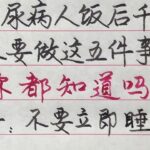 尿病人饭后千
要做这五件事
你都知道吗
:不要立即睡